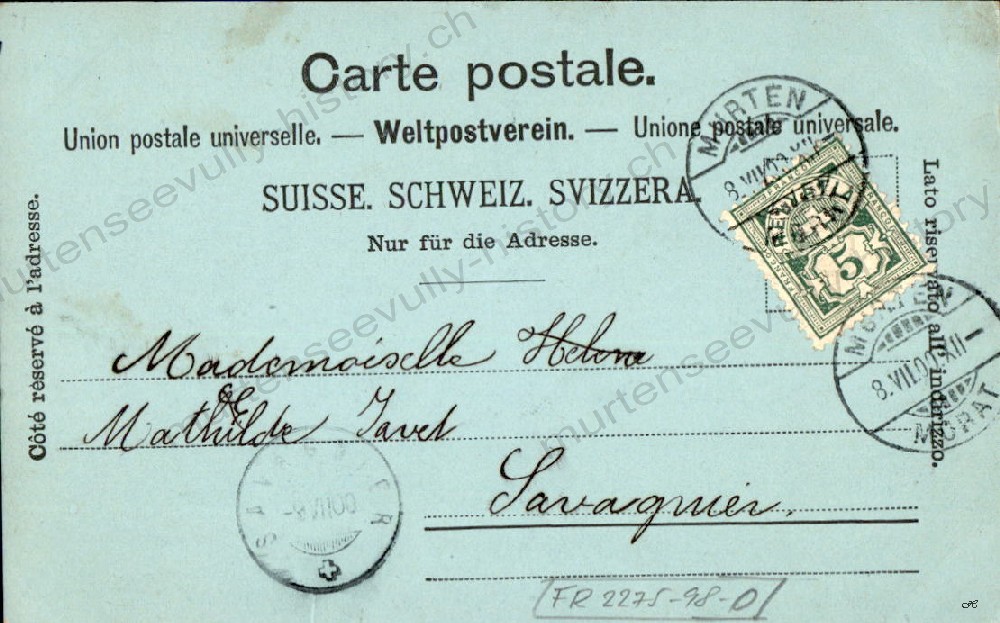 Carte postale.
Union postale universelle. — Weltpostverein. — Unione postale universale.
SUISSE. SCHWEIZ. SVIZZERA.
Nur für die Adresse.
Côté réservé à l'adresse.
Lato riservato all' indirizzo.
MURTEN
8.VII.00.XII
HELVETIA
FRANCO
5
MURTEN
8.VII.00.XII
MORAT
Mademoiselle Helene
Mathilde Javet
Savagnier.
FR 2275-98-D
murtenseevully-history.ch